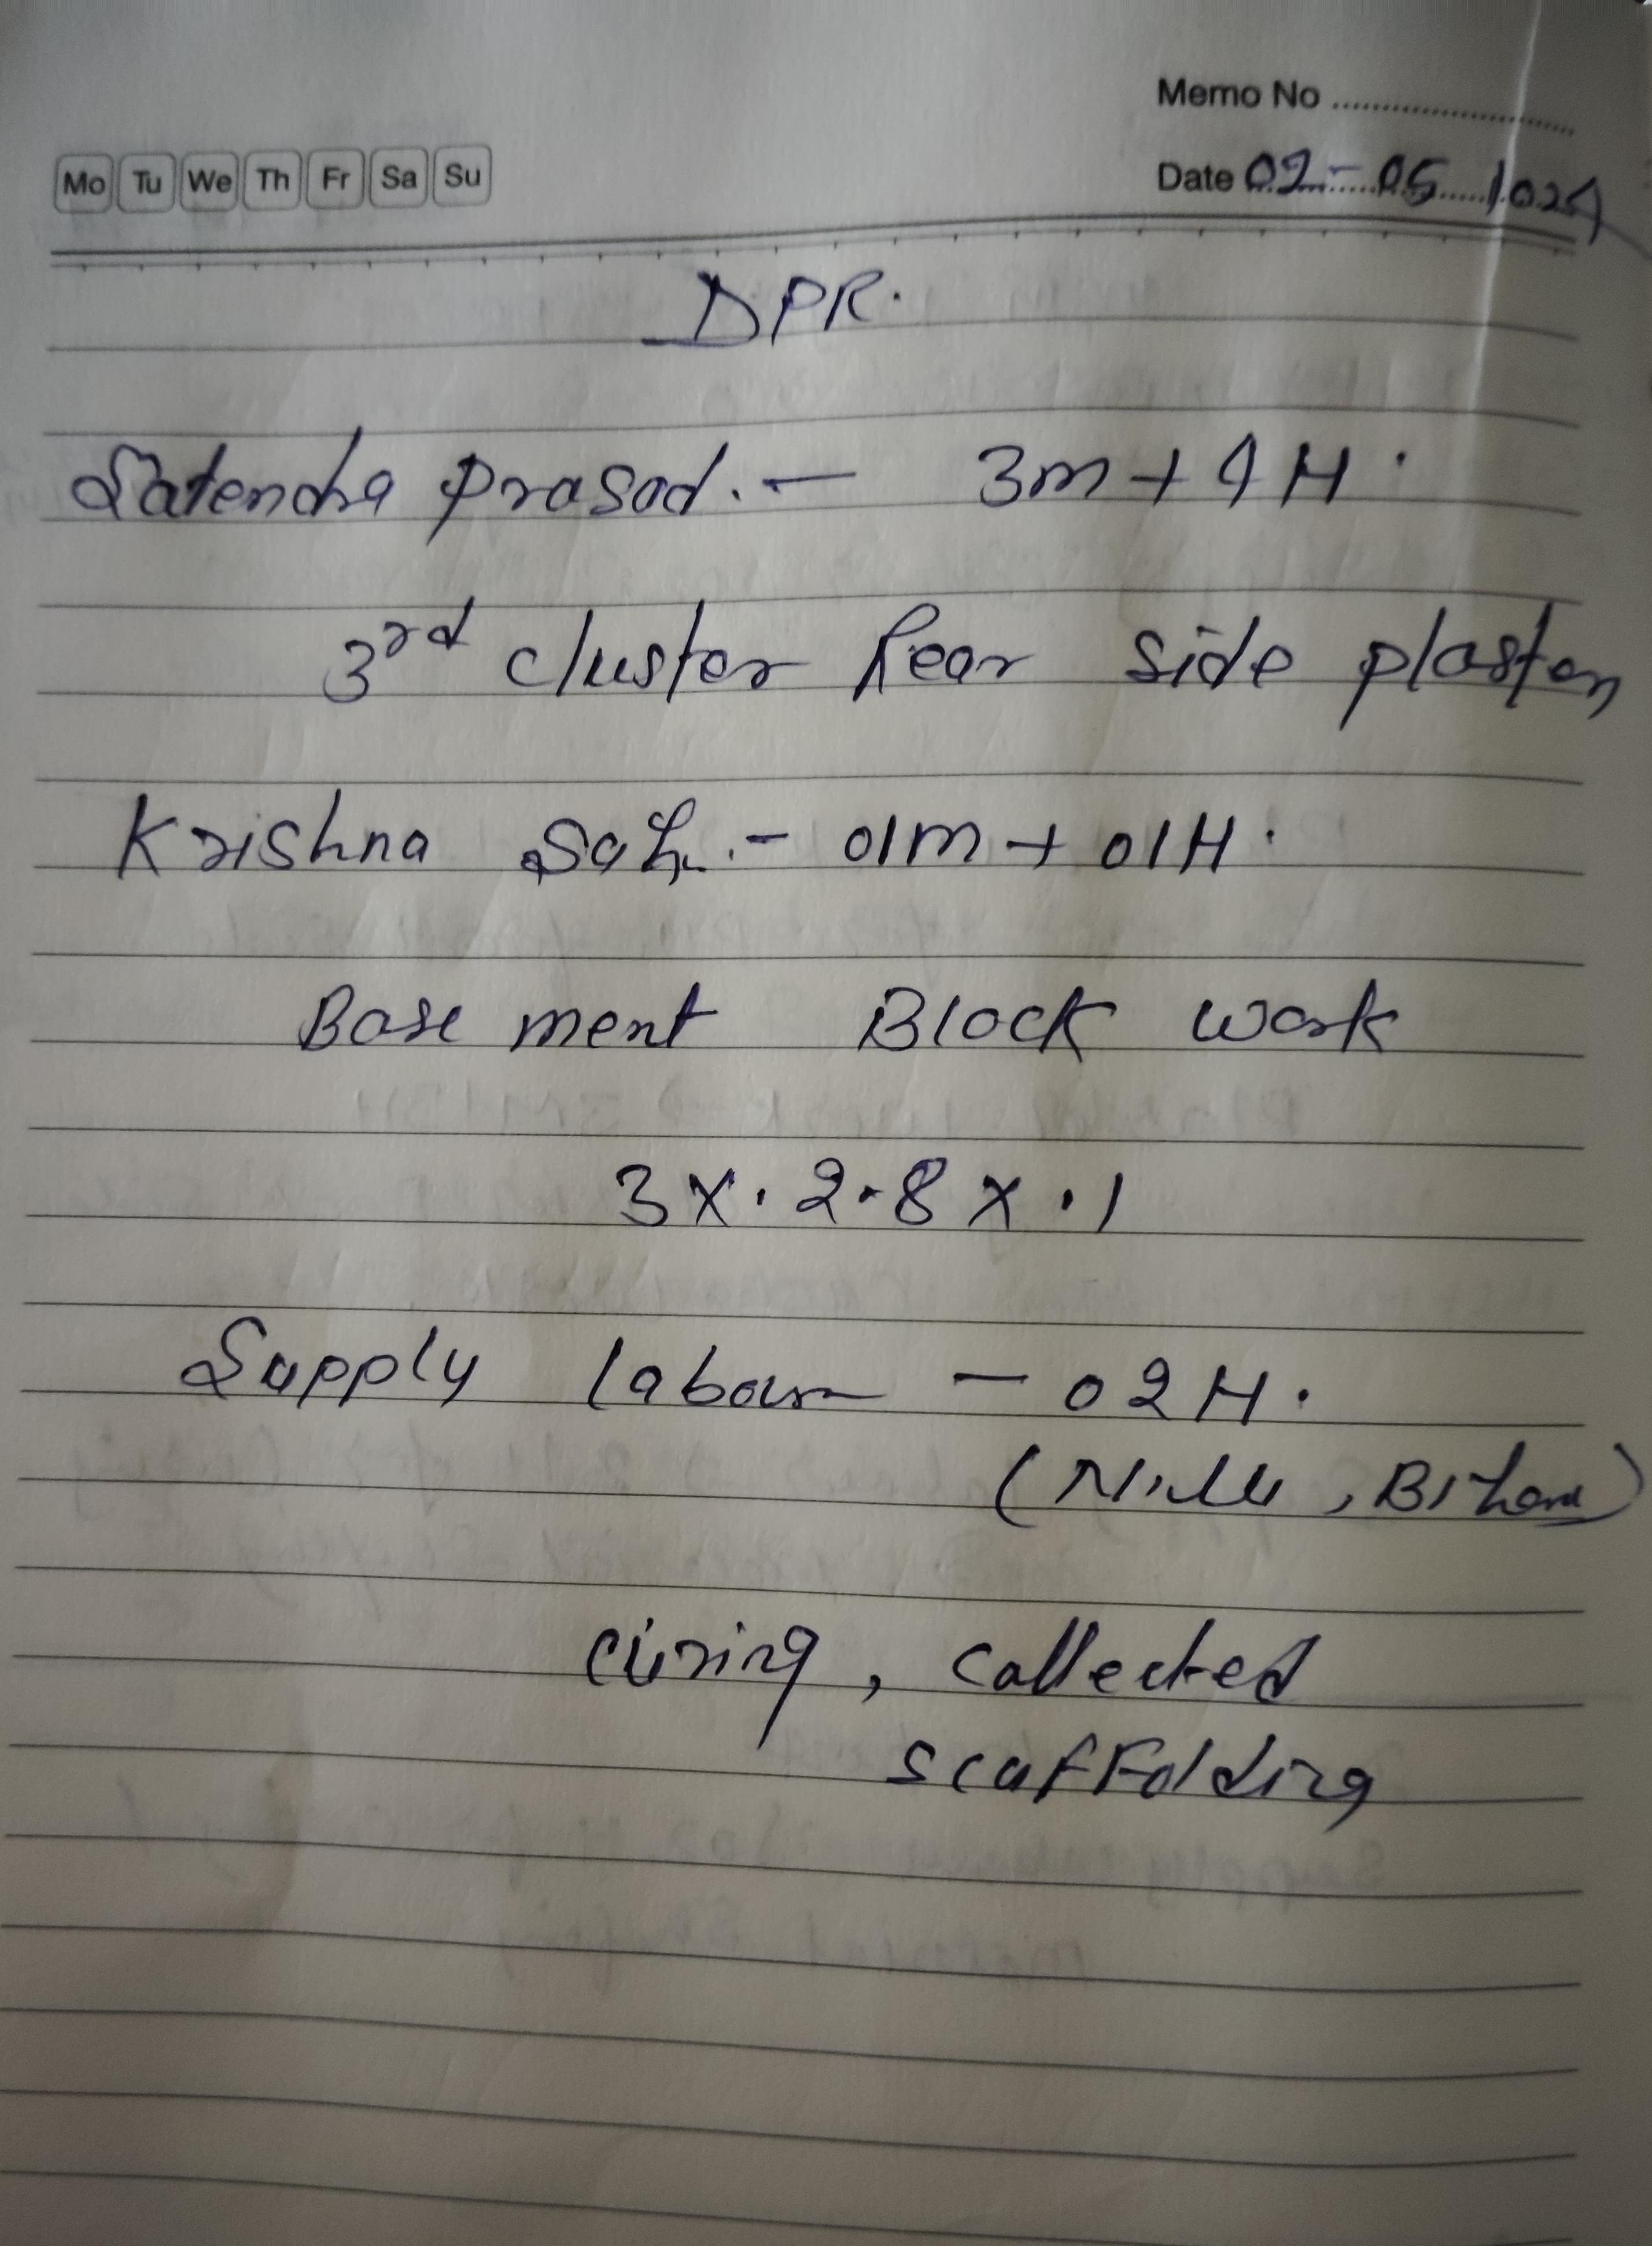 Memo No
Mo Tu We Th Fr Sa Su
Date 02-05 1024
DPR.
Satendra prasad. - 3m + 4H.
3rd cluster Rear side plaster
Krishna Sah. - 01m + 01H.
Base ment Block work
3 x . 2.8 x .1
Supply labour - 02H.
( , Bihari)
curing, collected
scaffolding